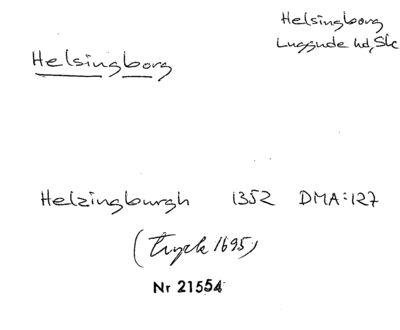 Helsingborg
Luggude hd, Sk
Helsingborg
Helzingburgh 1352 DMA:127
(tryck 1695)
Nr 21554